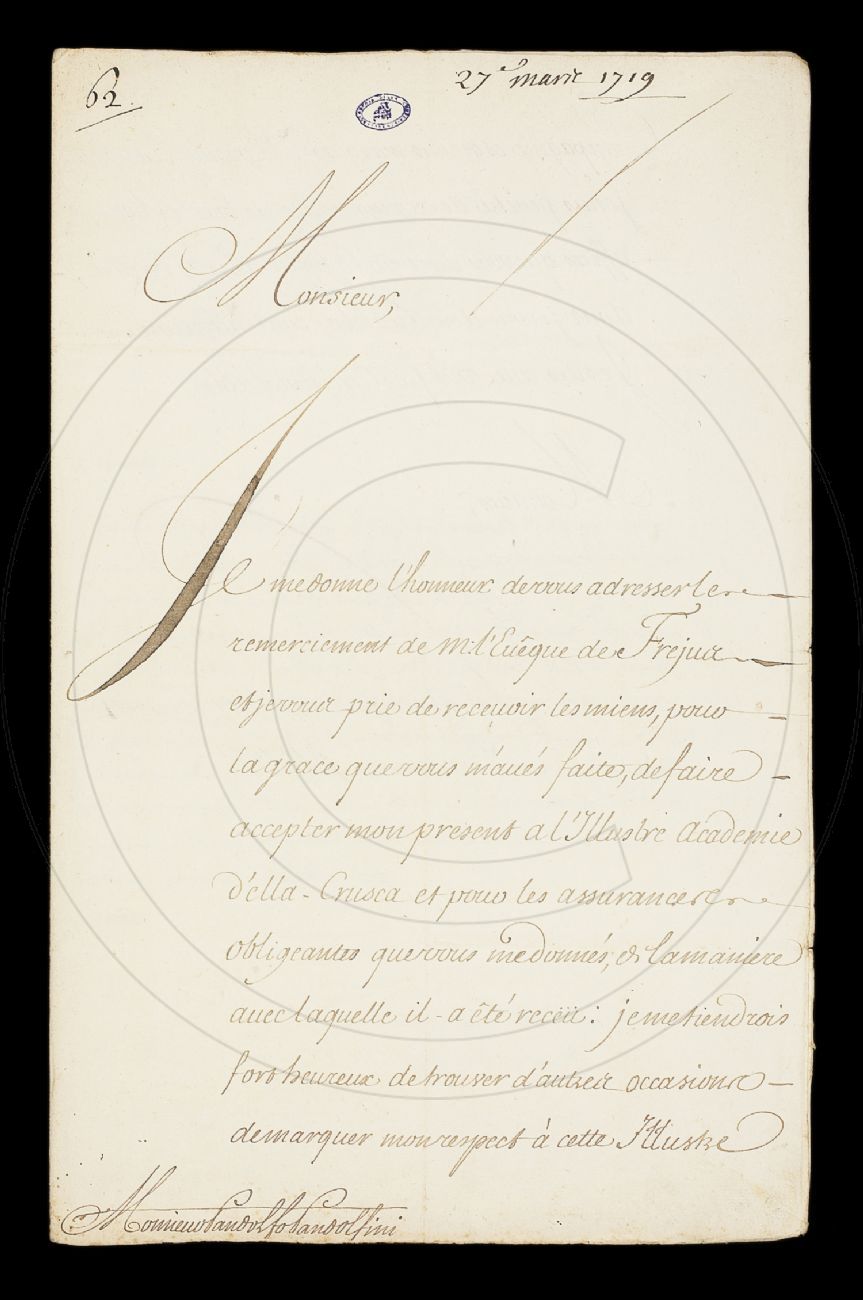 62.
27e mars 1719
Monsieur,
Je me donne l'honneur de vous adresser le
remerciement de Mr. l'Evêque de Frejus
et je vous prie de recevoir les miens, pour
la grace que vous m'avés faite, de faire
accepter mon present a l'Illustre Academie
d'ella-Crusca et pour les assurances
obligeantes que vous me donnés, de la maniere
avec laquelle il a été receü: je me tiendrois
fort heureux de trouver d'autres occasions
de marquer mon respect à cette Illustre
Monsieur Pandolfo Pandolfini